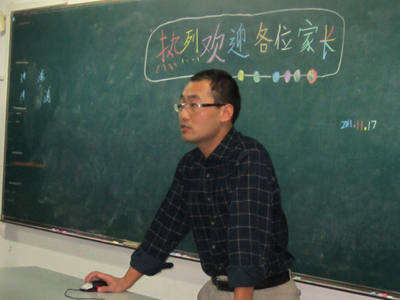 热烈欢迎各位家长
2011.11.17